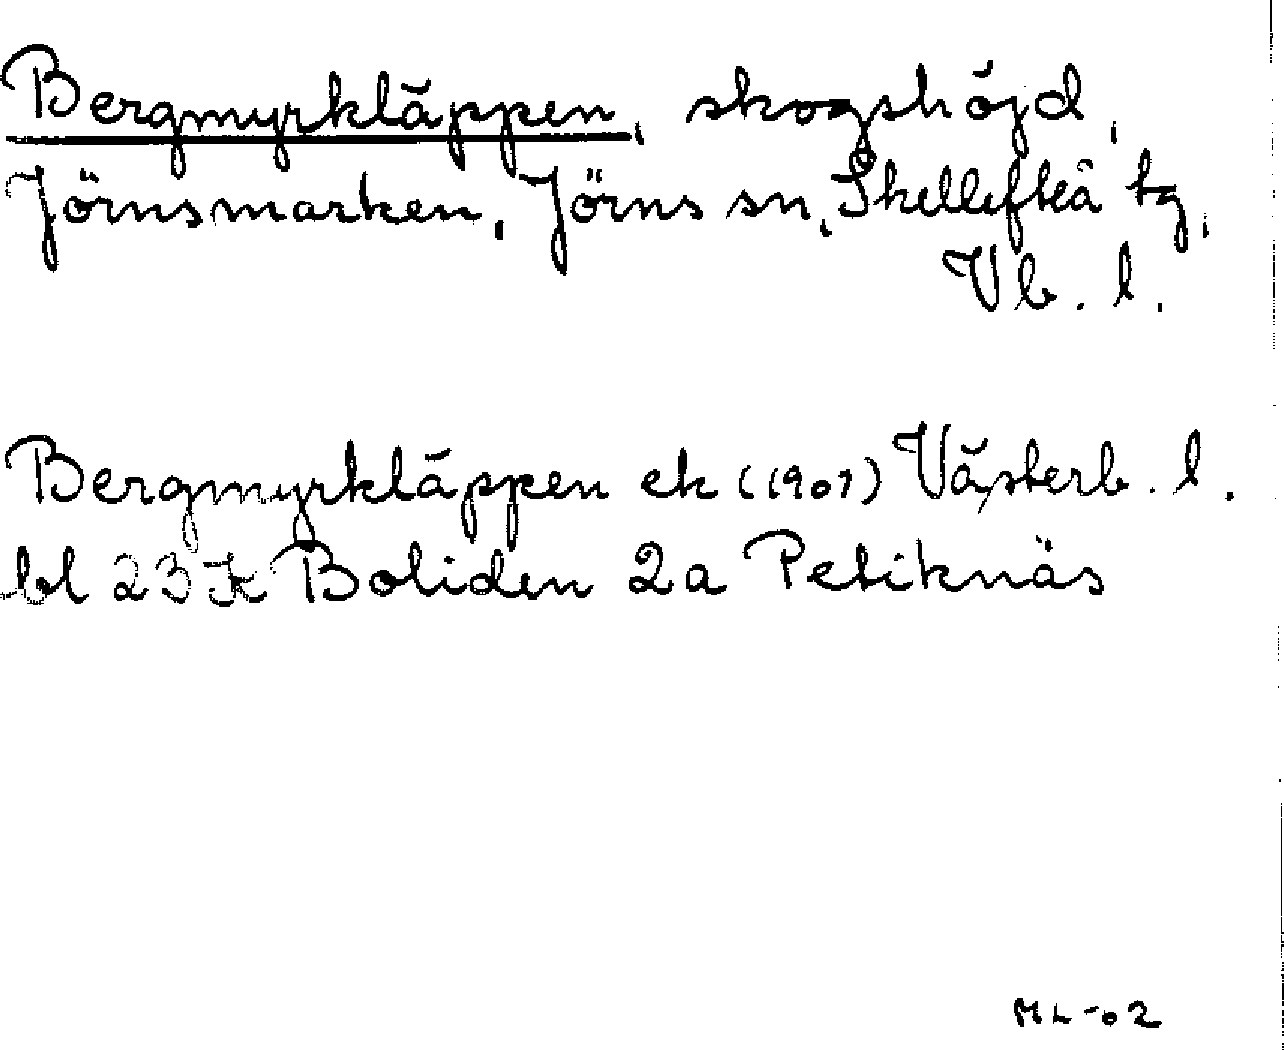 Bergmyrkläppen, skogshöjd,
Jörnsmarken, Jörns sn, Skellefteå tg,
Vb. l.
Bergmyrkläppen ek (1907) Västerb. l.
bl 23 K Boliden 2a Petiknäs
ML-02